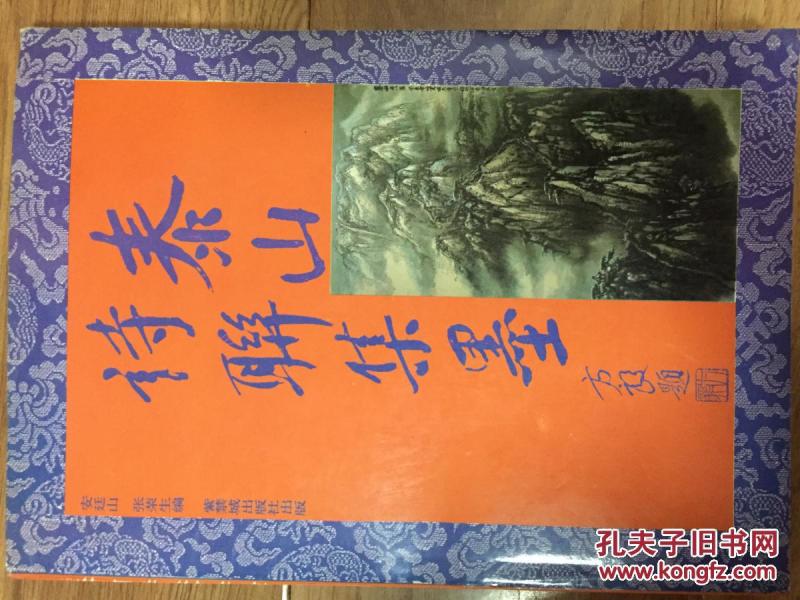 泰山
詩聯集墨
方毅題
安廷山 张荣生编
紫禁城出版社出版
孔夫子旧书网
www.kongfz.com